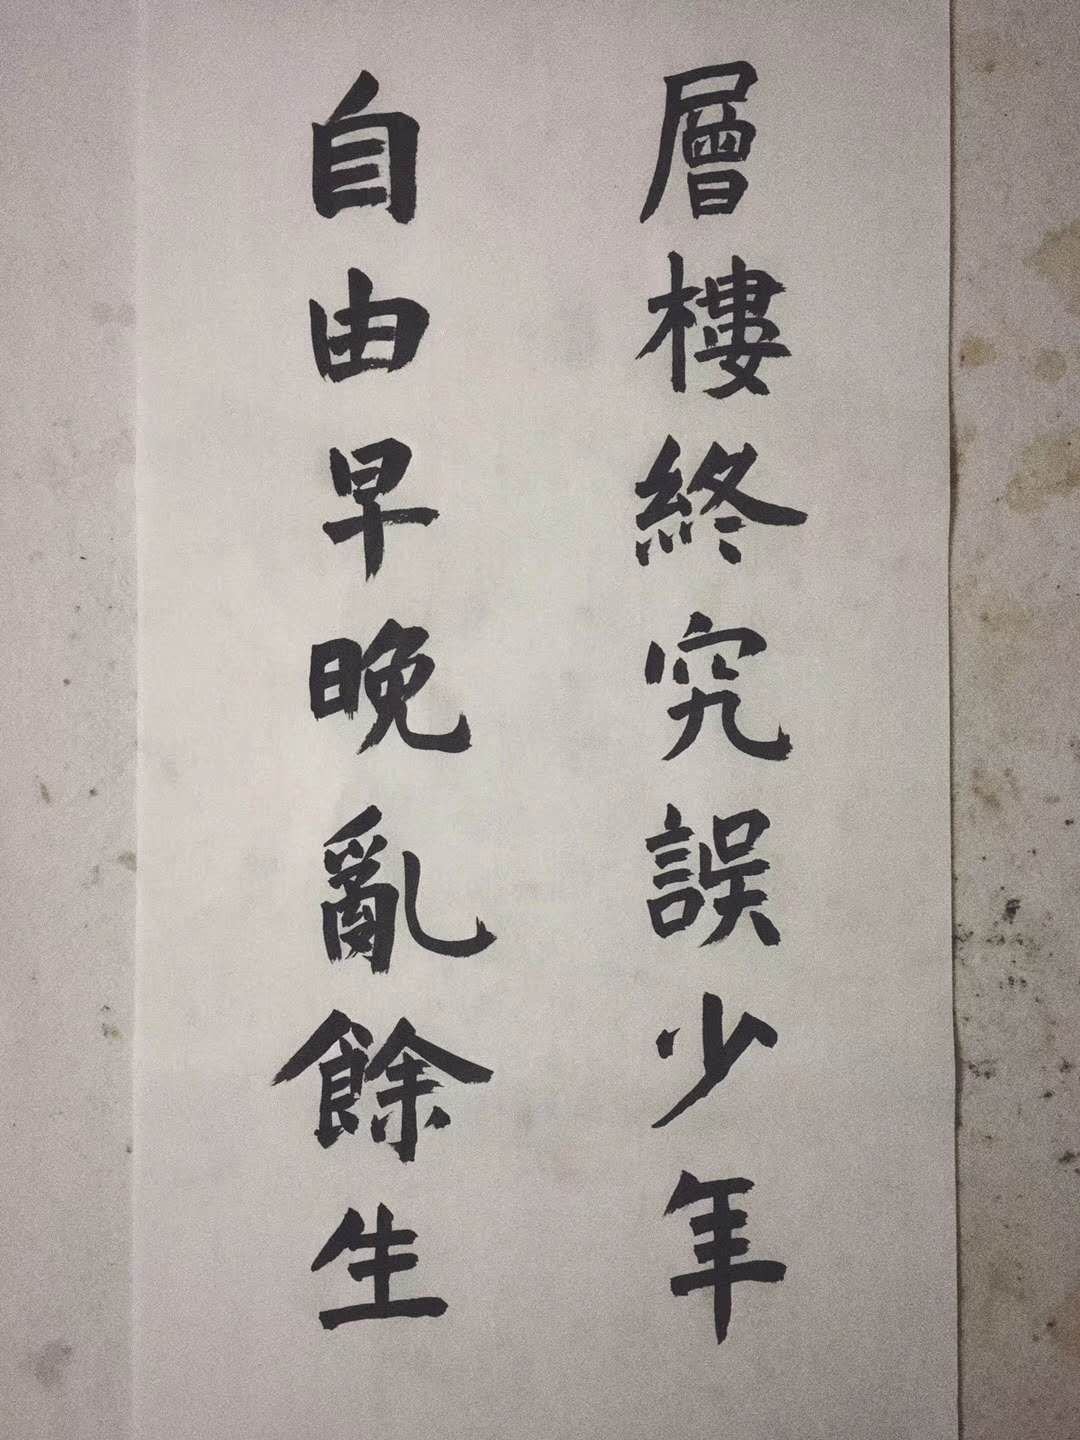 層樓終究誤少年
自由早晚亂餘生